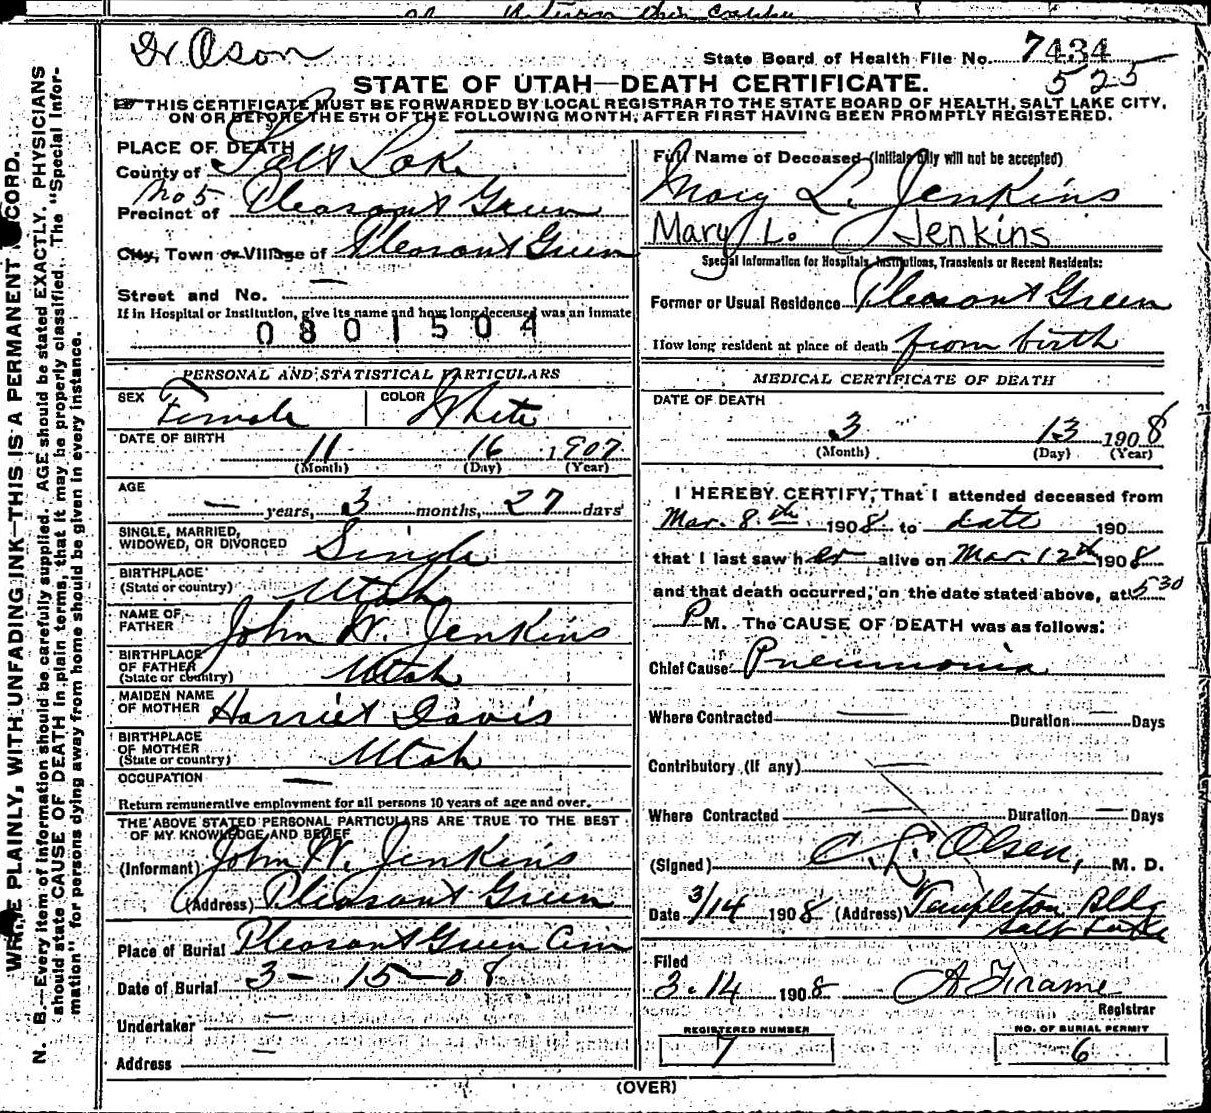 Dr Olson
State Board of Health File No. 7434
525
STATE OF UTAH—DEATH CERTIFICATE.
THIS CERTIFICATE MUST BE FORWARDED BY LOCAL REGISTRAR TO THE STATE BOARD OF HEALTH, SALT LAKE CITY,
ON OR BEFORE THE 5TH OF THE FOLLOWING MONTH, AFTER FIRST HAVING BEEN PROMPTLY REGISTERED.
WRITE PLAINLY, WITH UNFADING INK—THIS IS A PERMANENT RECORD.
N. B.—Every item of information should be carefully supplied. AGE should be stated EXACTLY. PHYSICIANS
should state CAUSE OF DEATH in plain terms, that it may be properly classified. The "Special Infor-
mation" for persons dying away from home should be given in every instance.
PLACE OF DEATH
County of Salt Lake
No 5
Precinct of Pleasant Green
City, Town or Village of Pleasant Green
Street and No. —
If in Hospital or Institution, give its name and how long deceased was an inmate
0801504
PERSONAL AND STATISTICAL PARTICULARS
SEX Female COLOR White
DATE OF BIRTH 11 16 1907
(Month) (Day) (Year)
AGE
— years, 3 months, 27 days
SINGLE, MARRIED,
WIDOWED, OR DIVORCED Single
BIRTHPLACE
(State or country) Utah
NAME OF
FATHER John W. Jenkins
BIRTHPLACE
OF FATHER
(State or country) Utah
MAIDEN NAME
OF MOTHER Harriet Davis
BIRTHPLACE
OF MOTHER
(State or country) Utah
OCCUPATION —
Return remunerative employment for all persons 10 years of age and over.
THE ABOVE STATED PERSONAL PARTICULARS ARE TRUE TO THE BEST
OF MY KNOWLEDGE AND BELIEF
(Informant) John W. Jenkins
(Address) Pleasant Green
Place of Burial Pleasant Green Cem
Date of Burial 3-15-08
Undertaker —
Address —
Full Name of Deceased (Initials only will not be accepted)
Mary L. Jenkins
Mary L. Jenkins
Special Information for Hospitals, Institutions, Transients or Recent Residents:
Former or Usual Residence Pleasant Green
How long resident at place of death from birth
MEDICAL CERTIFICATE OF DEATH
DATE OF DEATH
3 13 1908
(Month) (Day) (Year)
I HEREBY CERTIFY, That I attended deceased from
Mar. 8th 1908 to date 190
that I last saw her alive on Mar. 12th 1908
and that death occurred, on the date stated above, at 5 30
P M. The CAUSE OF DEATH was as follows:
Chief Cause Pneumonia
Where Contracted — Duration — Days
Contributory (If any) —
Where Contracted — Duration — Days
(Signed) C. L. Olsen, M. D.
Date 3/14 1908 (Address) Templeton Bldg
Salt Lake
Filed
3.14 1908
Registrar
REGISTERED NUMBER
7
NO. OF BURIAL PERMIT
6
(OVER)